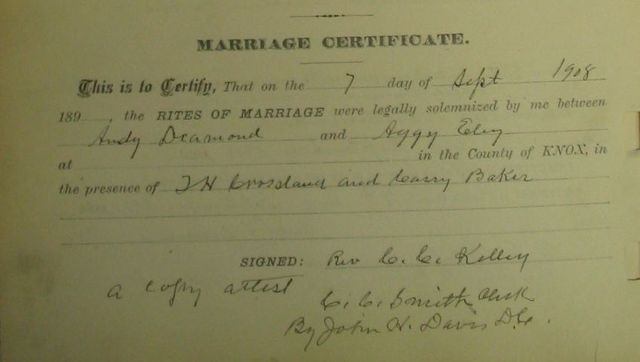 MARRIAGE CERTIFICATE.
This is to Certify, That on the 7 day of Sept 1908
189 , the RITES OF MARRIAGE were legally solemnized by me between
Andy Dearmond and Aggy Eley
at in the County of KNOX, in
the presence of T H Crossland and Carry Baker
SIGNED: Rev C. C. Kelley
a copy attest
C. C. Smith Clerk
By John W. Davis D.C.